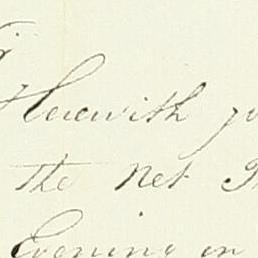 Herewith
the net
Evening on